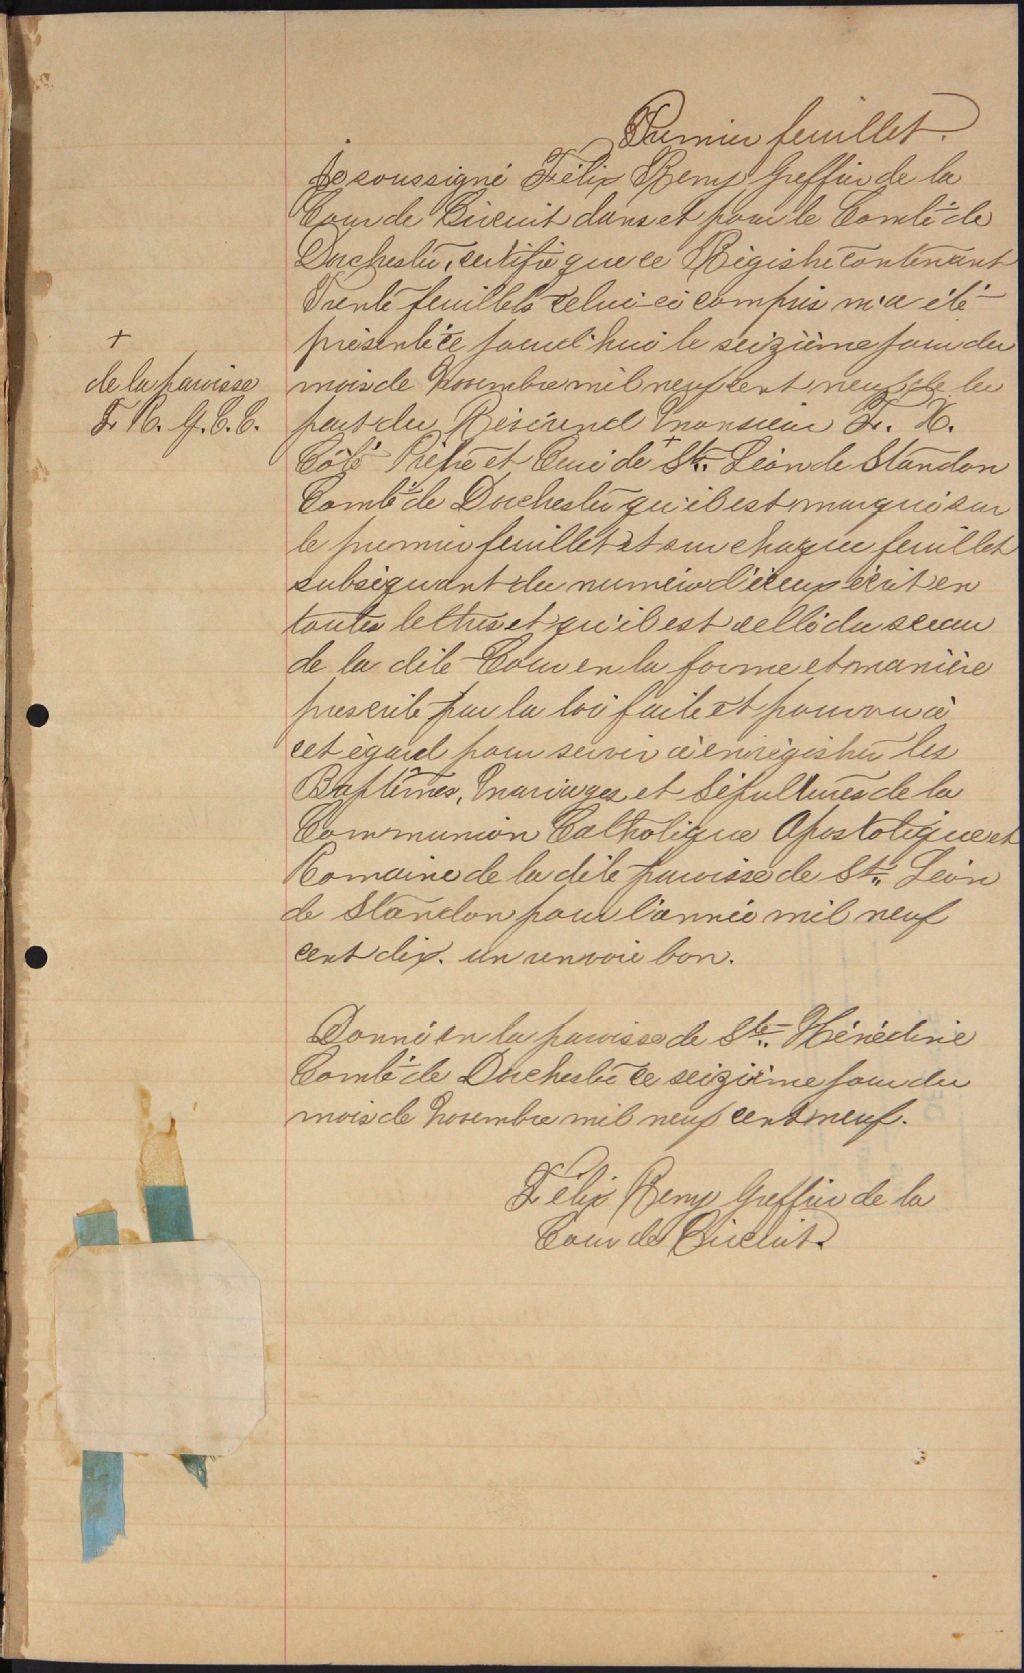 Premier feuillet.
Je soussigné Félix Remy Greffier de la
Cour de Circuit dans et pour le Comté de
Dorchester, certifie que ce Régistre contenant
Trente feuillets celui-ci compris m'a été
présenté ce jourd'hui le seizième jour du
mois de Novembre mil neuf cent neuf de la
part du Révérend Monsieur F. X.
Côté Prêtre et Curé de + St. Léon de Standon
Comté de Dorchester qu'il est marqué sur
le premier feuillet et sur chaque feuillet
subséquent du numéro d'iceux écrit en
toutes lettres et qu'il est scellé du sceau
de la dite Cour en la forme et manière
prescrite par la loi faite et pourvu à
cet égard pour servir à enrégistrer les
Baptêmes, Mariages et Sépultures de la
Communion Catholique Apostolique et
Romaine de la dite paroisse de St. Léon
de Standon pour l'année mil neuf
cent dix. un renvoie bon.
+
de la paroisse
F. R. G. C. C.
Donné en la paroisse de Ste. Hénédine
Comté de Dorchester ce seizième jour du
mois de Novembre mil neuf cent neuf.
Félix Remy Greffier de la
Cour de Circuit.